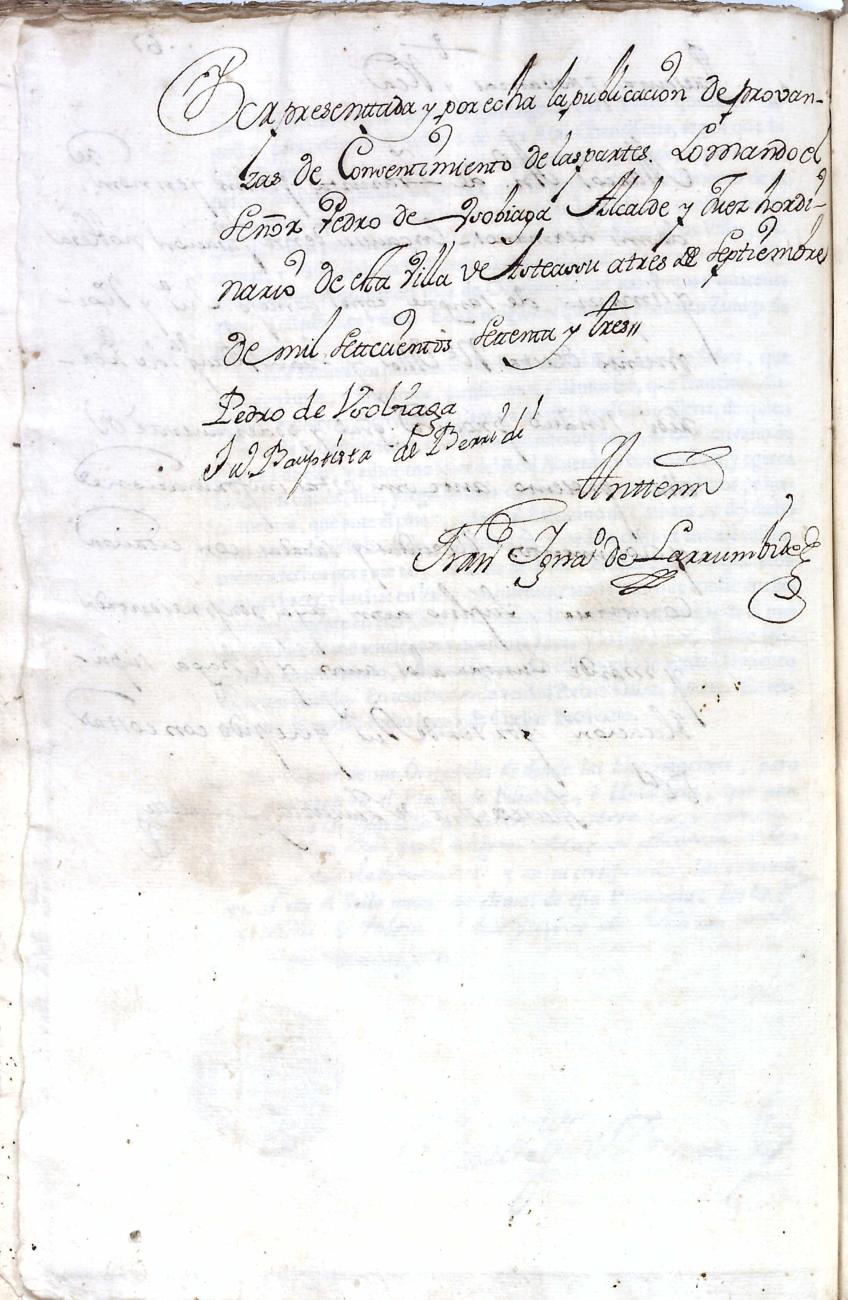 Por presenttada y por echa la publicacion de provan-
zas de Consentimiento de las partes. Lo mando el
Señor Pedro de Ysobiaga Alcalde y Juez hordi-
nario de esta Villa de Asteassu a tres de Septiembre
de mil settecientos settenta y tres //
Pedro de Ysobiaga
Ju.n Baptista de Berri di
Anttemi
Fran.co Igna.o de Larrumbide